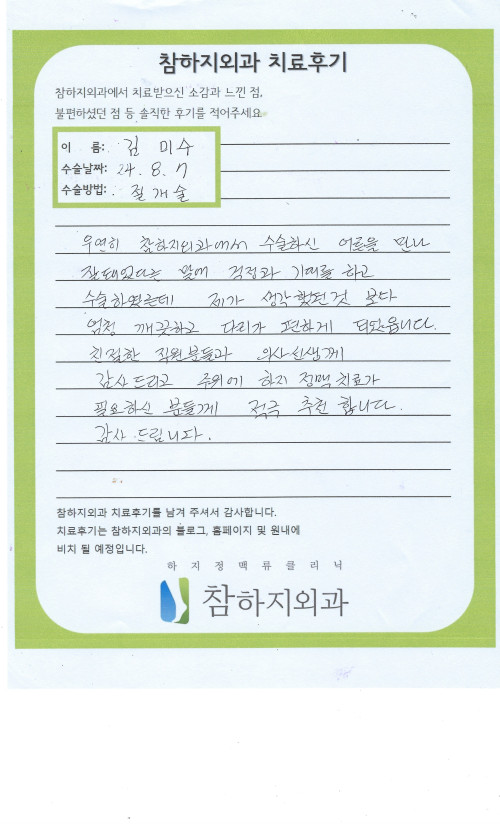 참하지외과 치료후기
참하지외과에서 치료받으신 소감과 느낀 점,
불편하셨던 점 등 솔직한 후기를 적어주세요
이 름: 김 미수
수술날짜: 24. 8. 7
수술방법: 절개술
우연히 참하지외과에서 수술하신 어른을 만나
잘돼었다는 말에 걱정과 기대를 하고
수술하였는데 제가 생각했던것 보다
엄청 깨끗하고 다리가 편하게 되었읍니다.
친절한 직원분들과 의사선생께
감사드리고 주위에 하지 정맥치료가
필요하신 분들께 적극 추천 합니다.
감사 드립니다.
참하지외과 치료후기를 남겨 주셔서 감사합니다.
치료후기는 참하지외과의 블로그, 홈페이지 및 원내에
비치 될 예정입니다.
하지정맥류클리닉
참하지외과